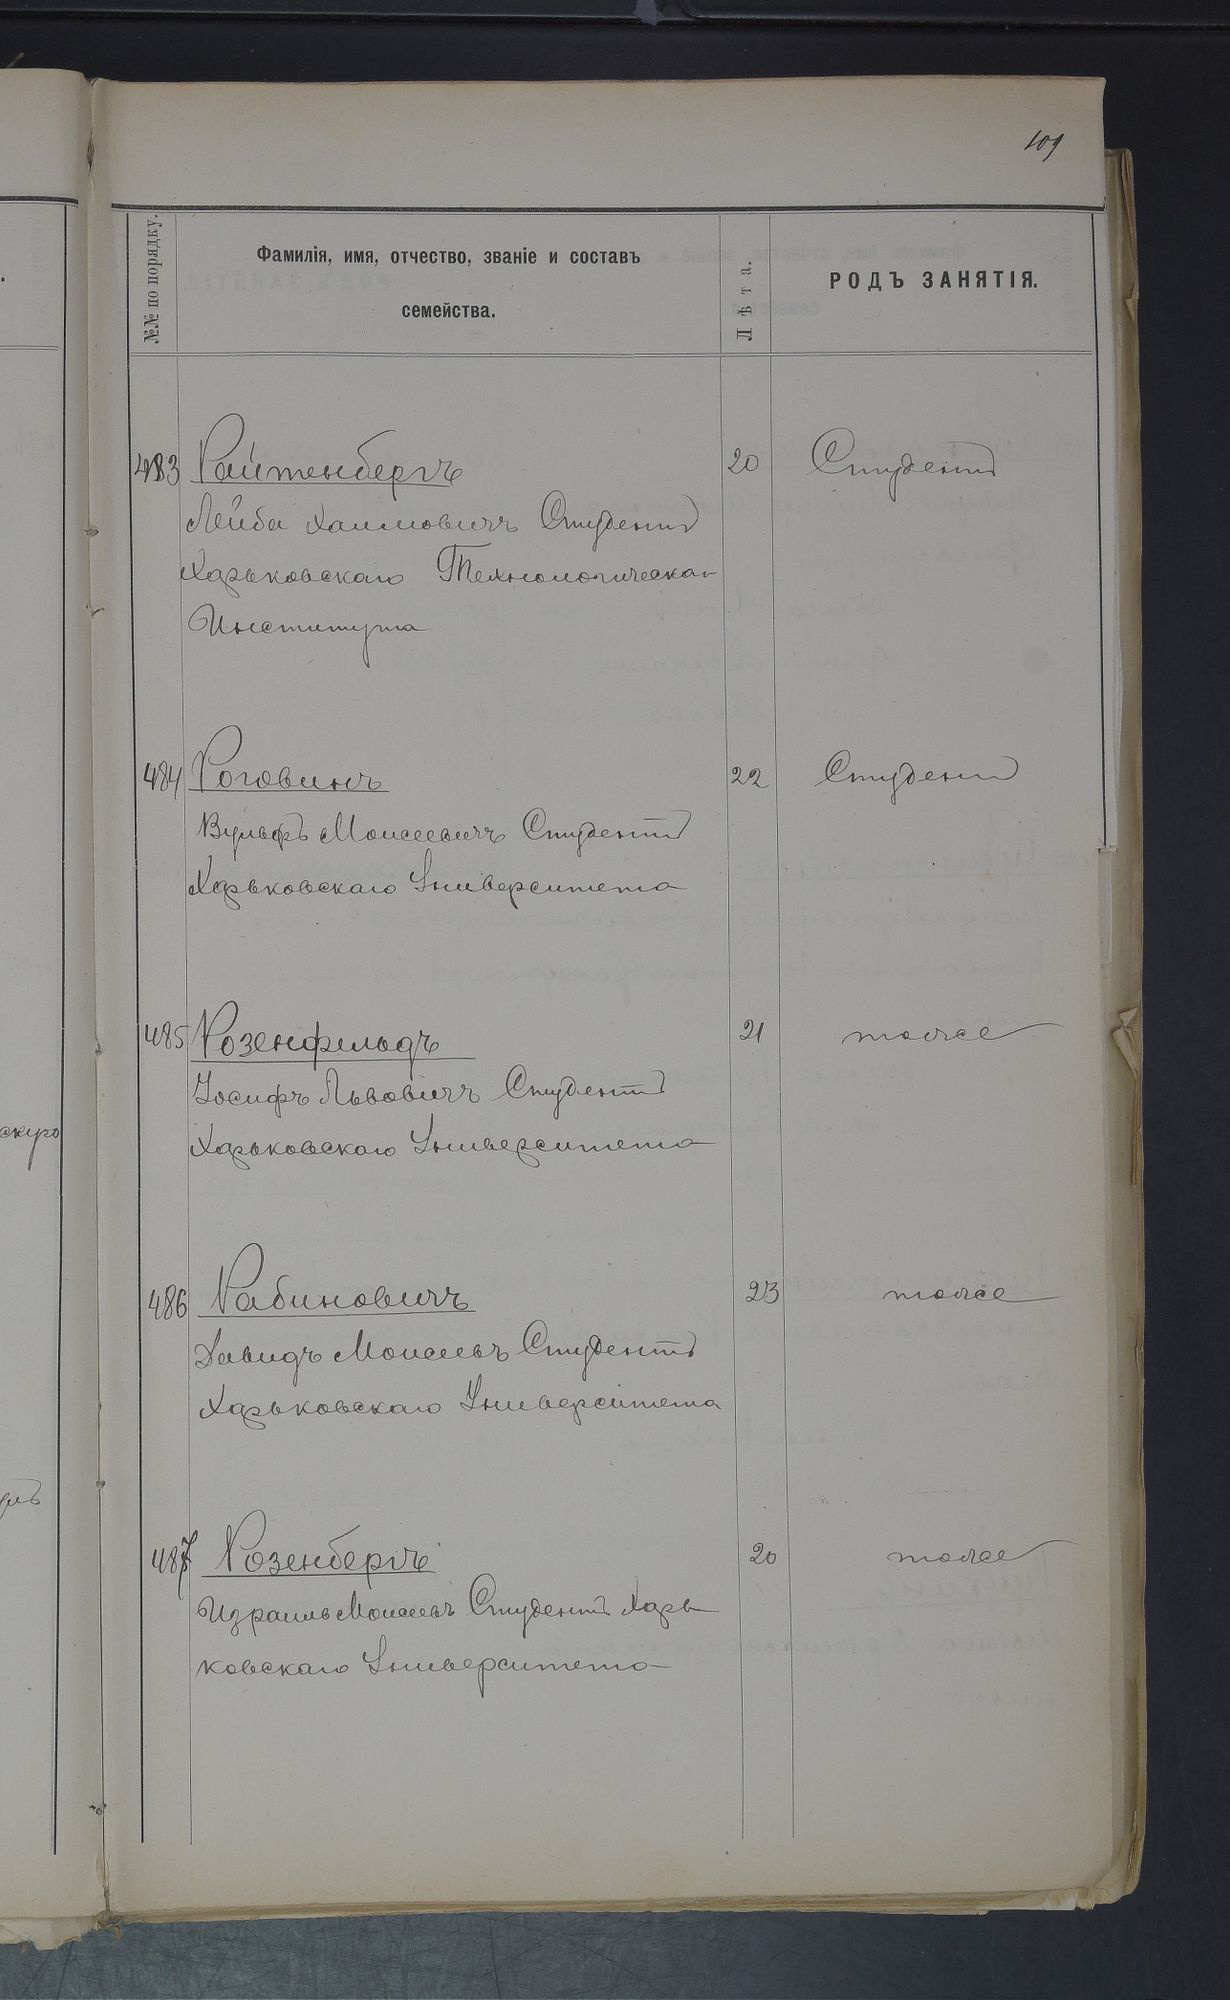 109
№№ по порядку.
Фамилія, имя, отчество, званіе и составъ
семейства.
Лѣта.
РОДЪ ЗАНЯТІЯ.
483 Райтенбергъ 20 Студентъ
Лейба Хаимовичъ Студентъ
Харьковскаго Технологическаго
Института
484 Роговинъ 22 Студентъ
Вульфъ Моисеевичъ Студентъ
Харьковскаго Университета
485 Розенфильдъ 21 тоже
Іосифъ Львовичъ Студентъ
Харьковскаго Университета
486 Рабиновичъ 23 тоже
Давидъ Моисеевъ Студентъ
Харьковскаго Университета
487 Розенбергъ 20 тоже
Израиль Моисеевъ Студентъ Харь-
ковскаго Университета